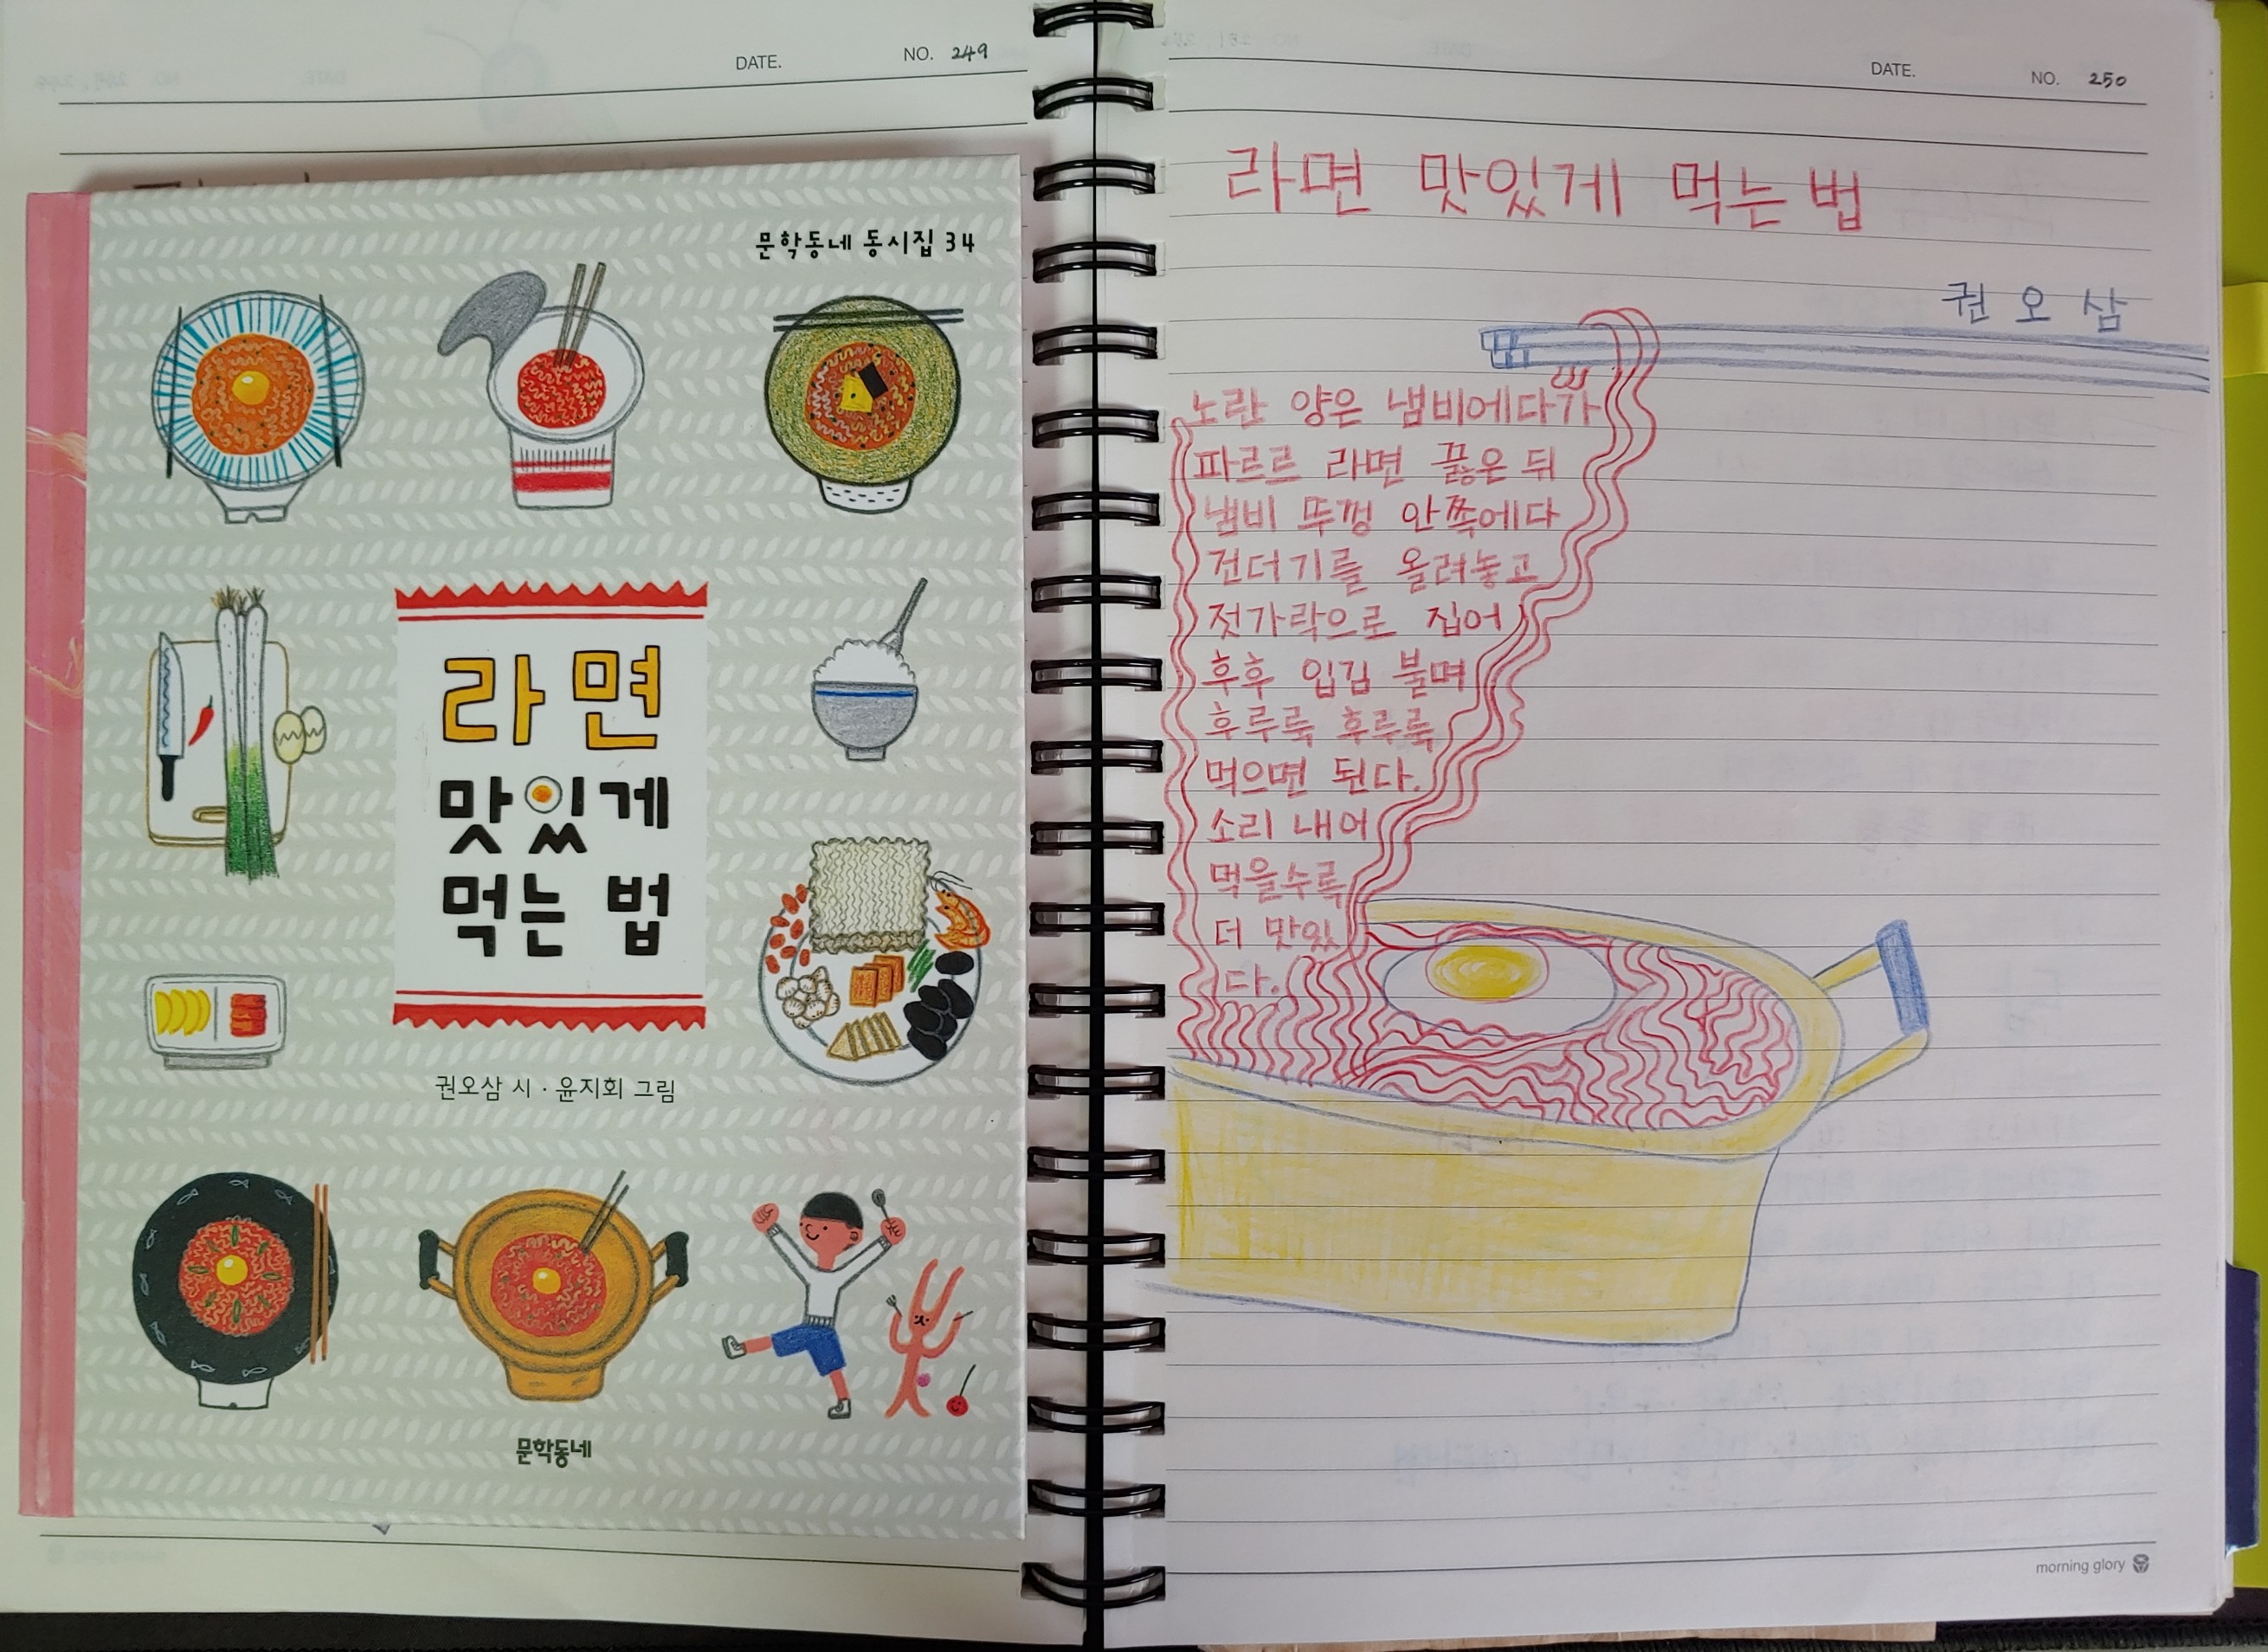 DATE. NO. 249
문학동네 동시집 34
라면
맛있게
먹는 법
권오삼 시 · 윤지회 그림
문학동네
DATE. NO. 250
라면 맛있게 먹는 법
권 오 삼
노란 양은 냄비에다가
파르르 라면 끓은 뒤
냄비 뚜껑 안쪽에다
건더기를 올려놓고
젓가락으로 집어
후후 입김 불며
후루룩 후루룩
먹으면 된다.
소리 내어
먹을수록
더 맛있
다.
morning glory